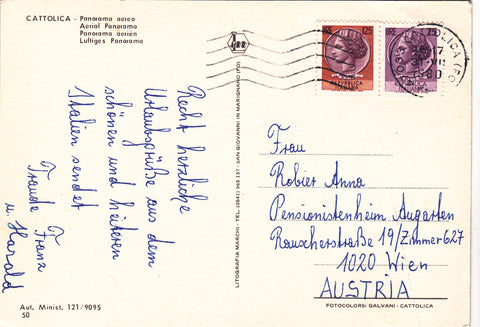 CATTOLICA - Panorama aereo
Aerial Panorama
Panorama aérien
Luftiges Panorama
Recht herzliche
Urlaubsgrüße aus dem
schönen und heiteren
Italien sendet
Traude Franz
u. Harald
Aut. Minist. 121/9095
50
LITOGRAFIA MARCHI - TEL. (0541) 945 157 - SAN GIOVANNI IN MARIGNANO (FO)
Frau
Robier Anna
Pensionistenheim Augarten
Rauscherstraße 19/Zimmer 627
1020 Wien
AUSTRIA
FOTOCOLORS: GALVANI - CATTOLICA